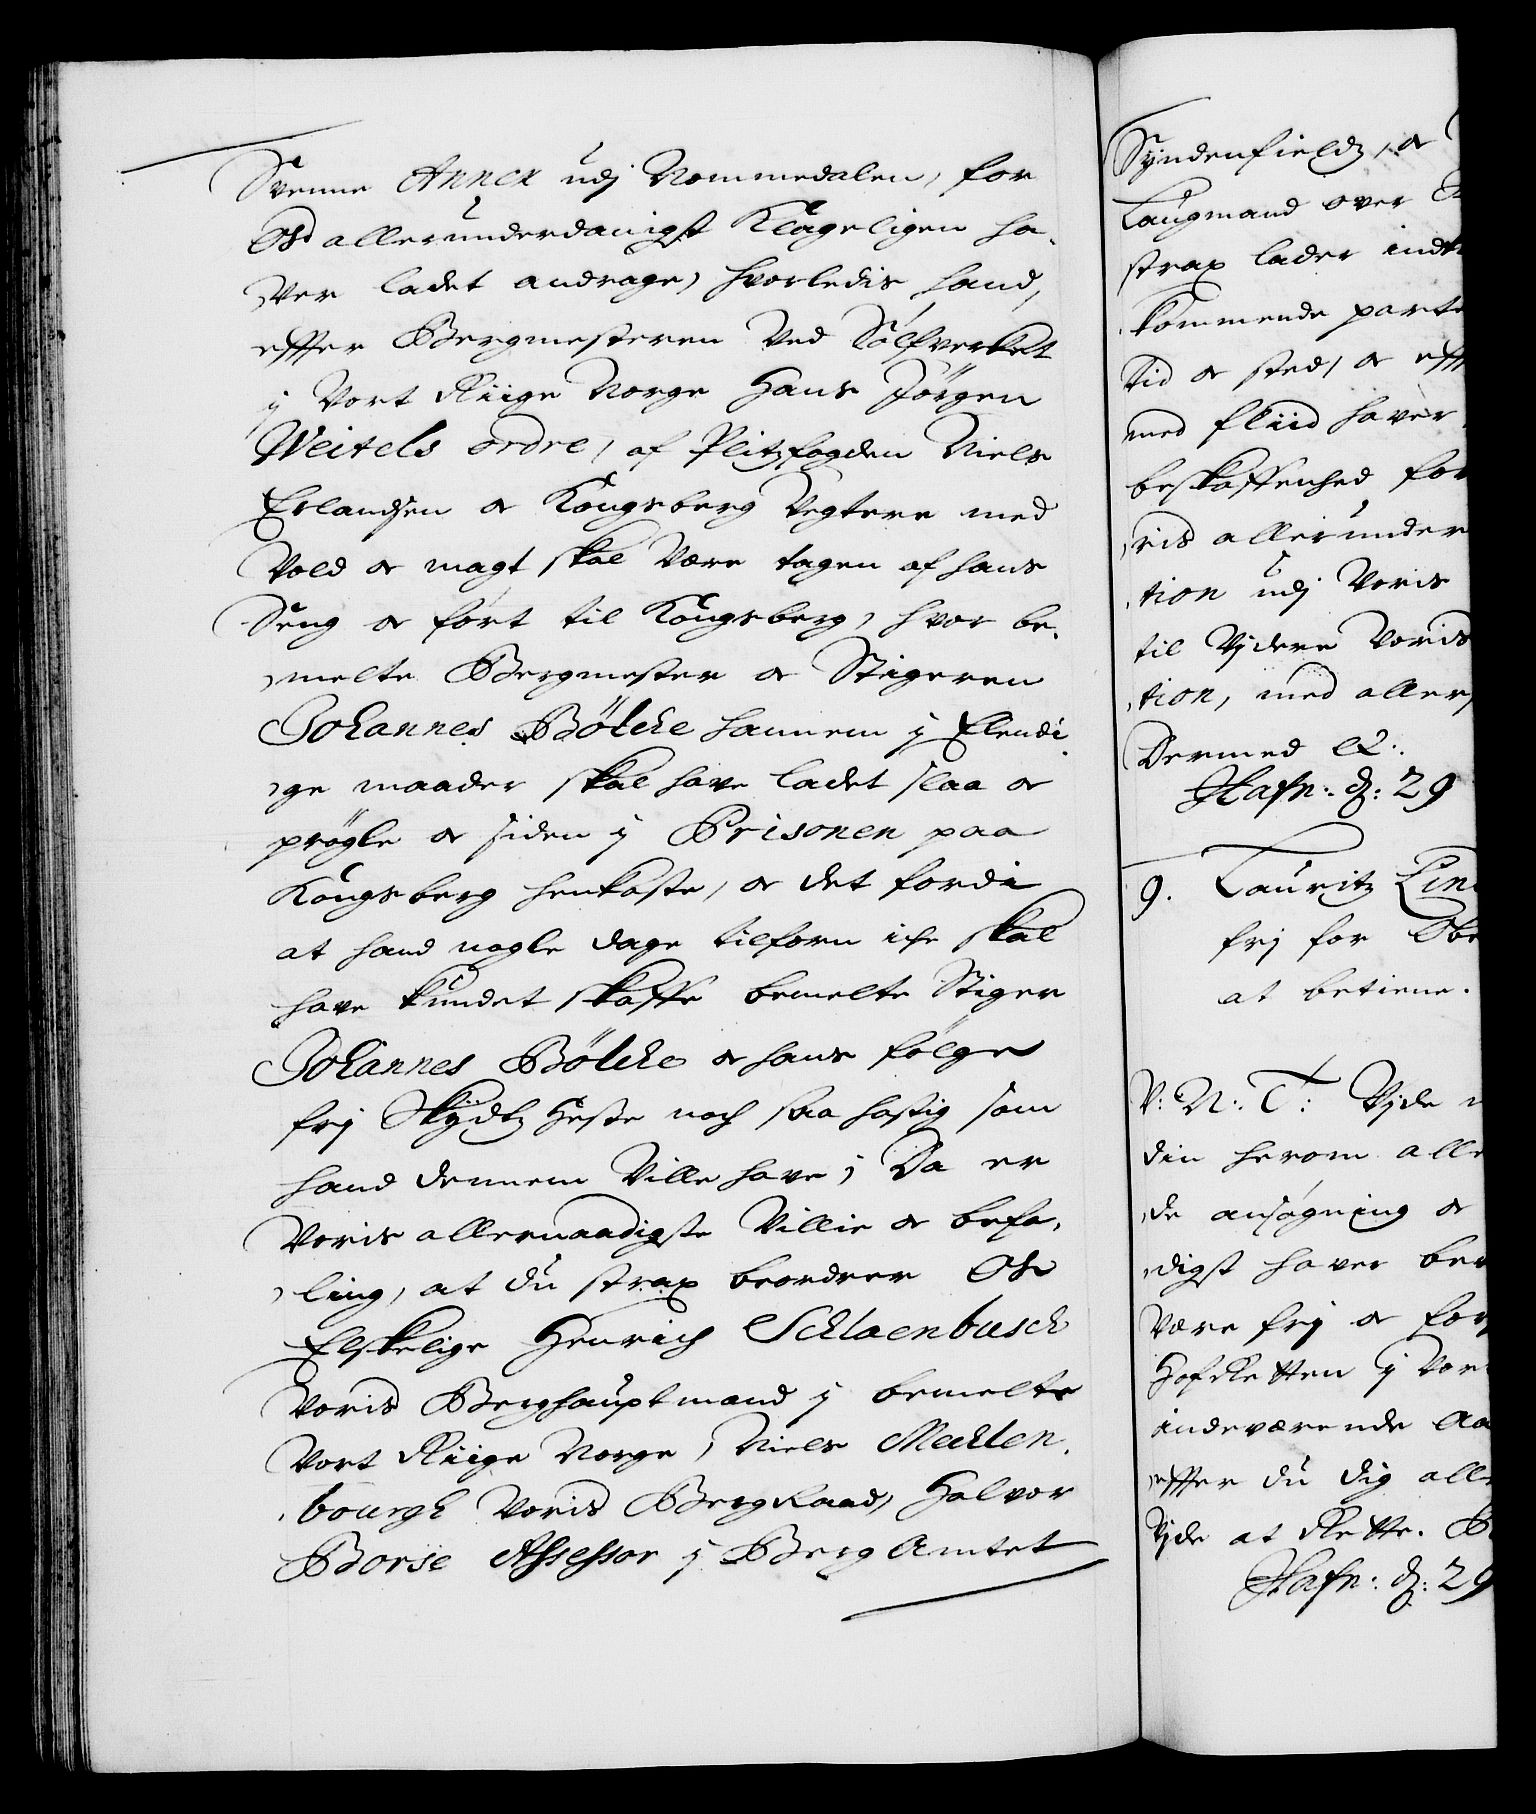 Svenne Annex udj Nommedalen, for
Os allerunderdanigst Klageligen ha-
ver ladet andrage, hvorledis hand,
effter Bergmesteren ved Sölfverket
j Vort Riige Norge Hans Jörgen
Weitels ordre, af Plitzfogden Niels
Erlandsen og Kongsberg Vegtere med
Vold og magt skal være tagen af hans
Seng og fört til Kongsberg, hvor be-
melte Bergmester og Stigeren
Johannes Bölche hannem j Elendi-
ge maader skal have ladet slaa og
prögle og siden j Prisonen paa
Kongsberg henkaste, og det fordi
at hand nogle dage tilforn iche skal
have kundet skaffe bemelte Stiger
Johannes Bölche og hans fölge
frj Skydtz Heste noch saa hastig som
hand dennem Ville have; Da er
Voris allernaadigste Villie og befa-
ling, at du strax beordrer Os
Elskelige Henrich Schlaenbusch
Voris Berghauptmand j bemelte
Vort Riige Norge, Niels Mechlen-
bourgh Voris BergRaad, Halvor
Borse Assessor j Berg Amtet
Syndenfieldz, og
Laugmand over
strax lader indst
kommende parte
tid og sted, og efft
med fliid haver
beskaffenhed for
ris allerunder
tion udj Voris
til Vjdere Voris
tion, med allers
Dermed etc:
Hafn: d: 29
9. Lauritz Lin
frj for Obe
at betiene.
V: N: T: Vjde
din herom alle
de ansøgning og
digst haver be
være frj og for
HofRetten j Vor
indeværende Aa
effter du dig all
Vjde at Rette. B
Hafn: d: 29